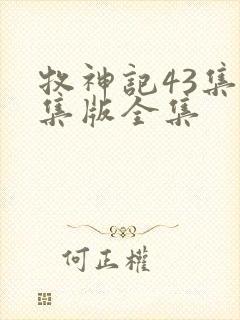 牧神記43集
集版全集
何正權